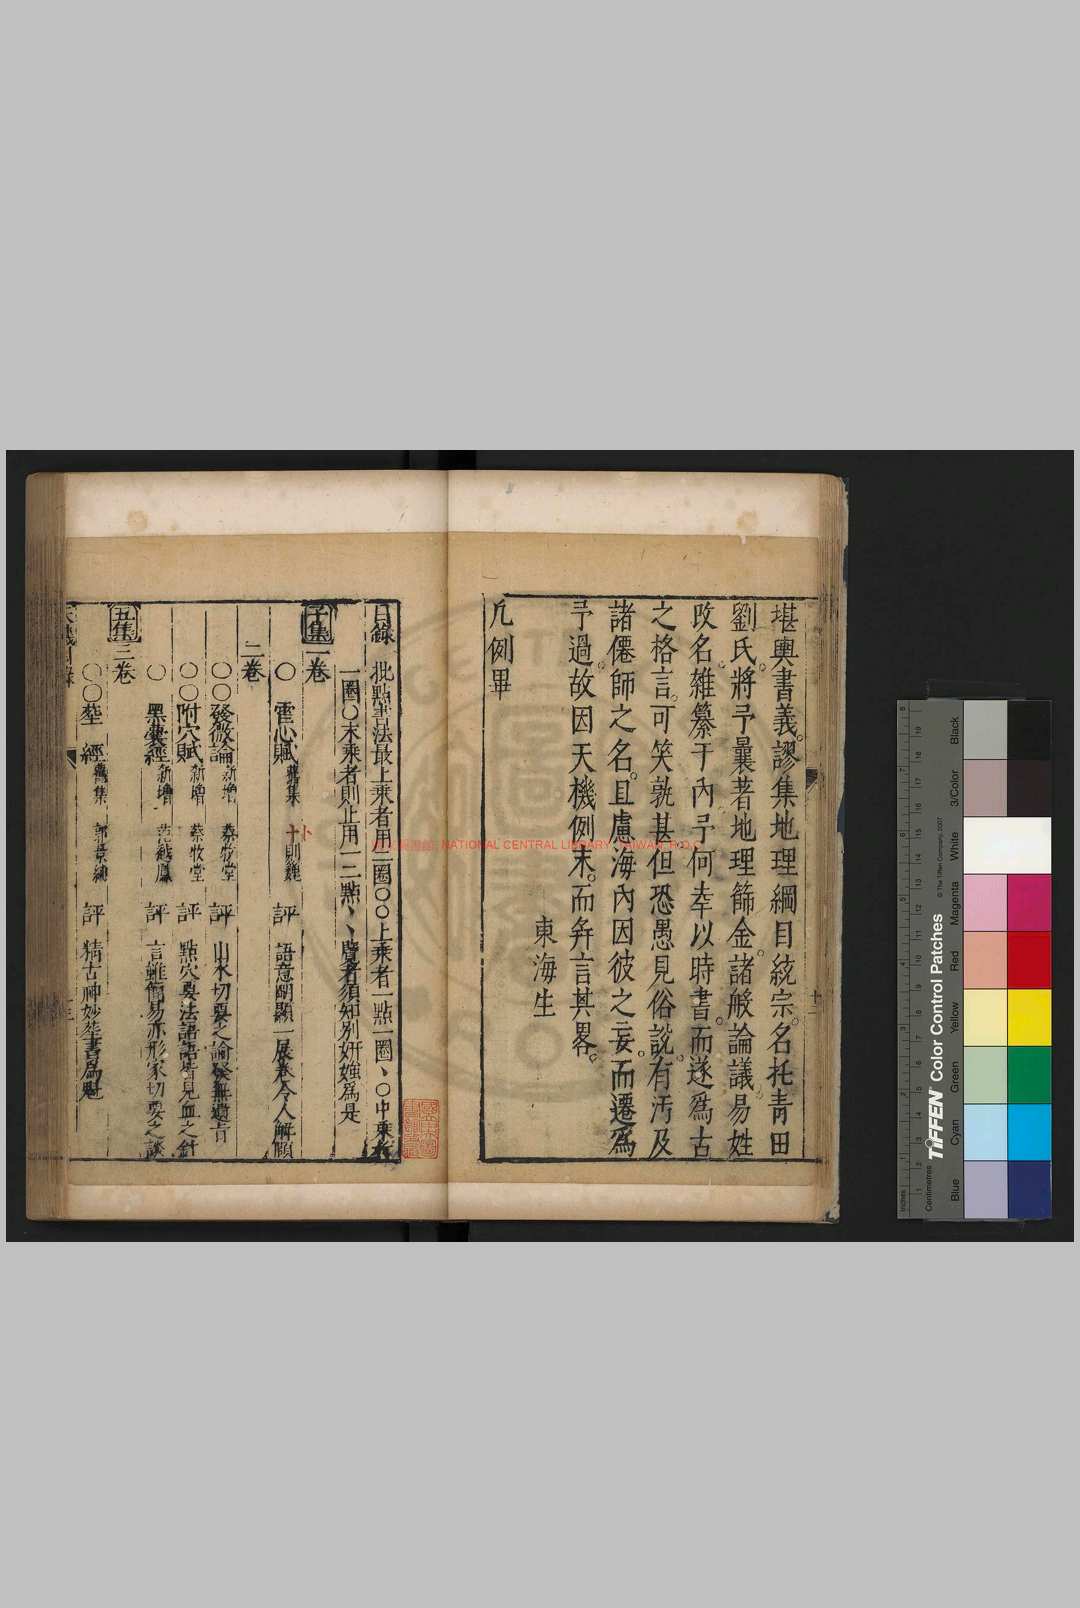 堪輿書義謬集地理綱目統宗名托青田
劉氏將予曩著地理篩金諸般論議易姓
改名雑纂于內予何幸以時書而遂為古
之格言可笑孰甚但恐愚見俗說有汚及
諸僊師之名且慮海內因彼之妄而遷為
予過故因天機例末而弁言其畧
東海生
凡例畢
目錄 批點書法最上乘者用二圈○○上乘者一點一圈、○中乘者
一圈○末乘者則止用一二點、、覽者須知別妍媸為是
子集一卷
○ 霍心賦 舊集 卜則巍 評 語意明顯一展卷令人解頤
二卷
○○發微論 新增 蔡牧堂 評 山水切要之論發無遺旨
○○附穴賦 新增 蔡牧堂 評 點穴要法語語皆見血之針
○ 黑囊經 新增 范越鳳 評 言雖簡易亦形家切要之談
五集三卷
○○塟 經 舊集 郭景純 評 精古神妙塟書為魁
NATIONAL CENTRAL LIBRARY, TAIWAN, R.O.C
TIFFEN Color Control Patches
© The Tiffen Company, 2007
Inches
Centimetres
Blue
Cyan
Green
Yellow
Red
Magenta
White
3/Color
Black